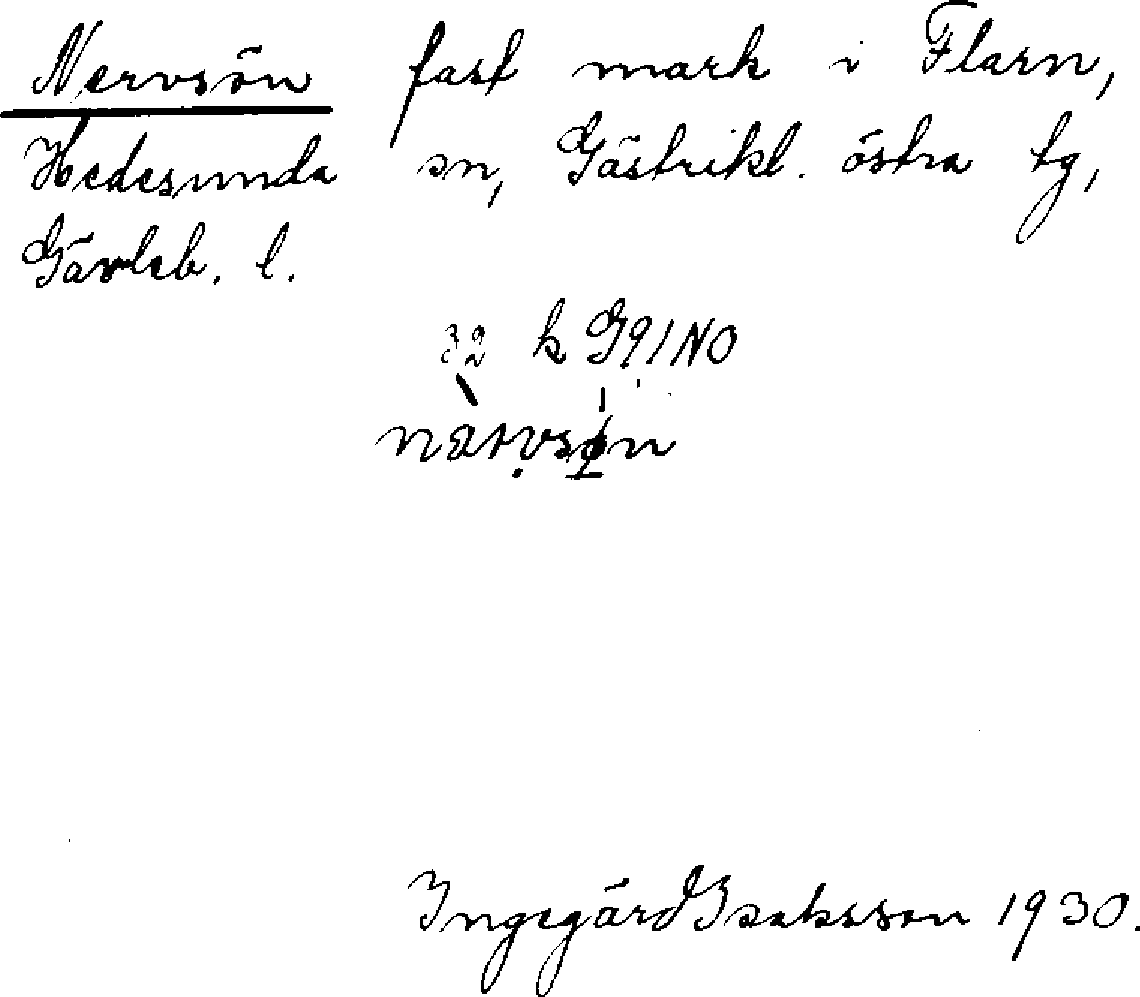 Nervsön fast mark i Flarn,
Hedesunda sn, Gästrikl. östra tg,
Gävleb. l.
32 k G91NO
Ingegärd Isaksson 1930.